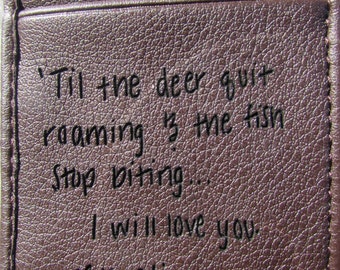 'Til the deer quit
roaming & the fish
stop biting...
I will love you.